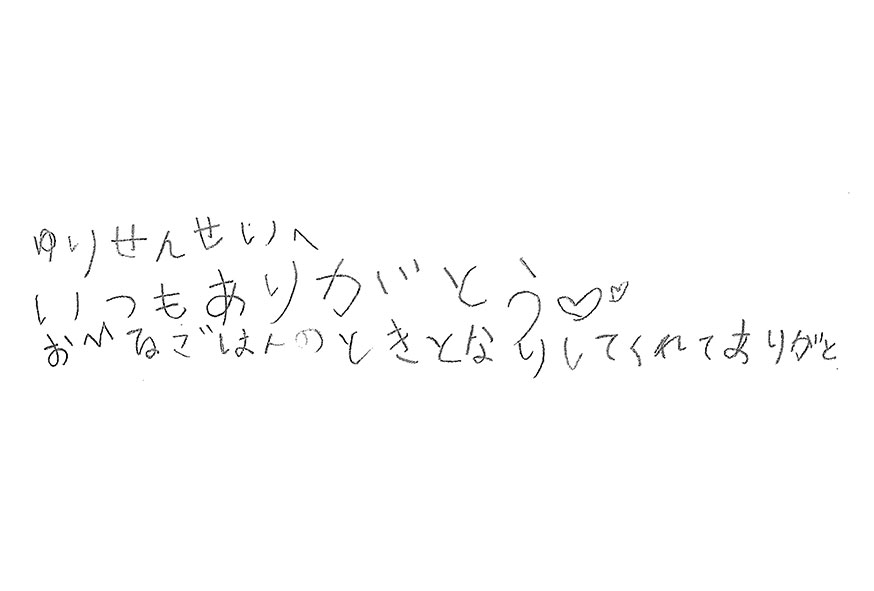 ゆりせんせいへ
いつもありがとう♡♡
おひるごはんのときとなりしてくれてありがと